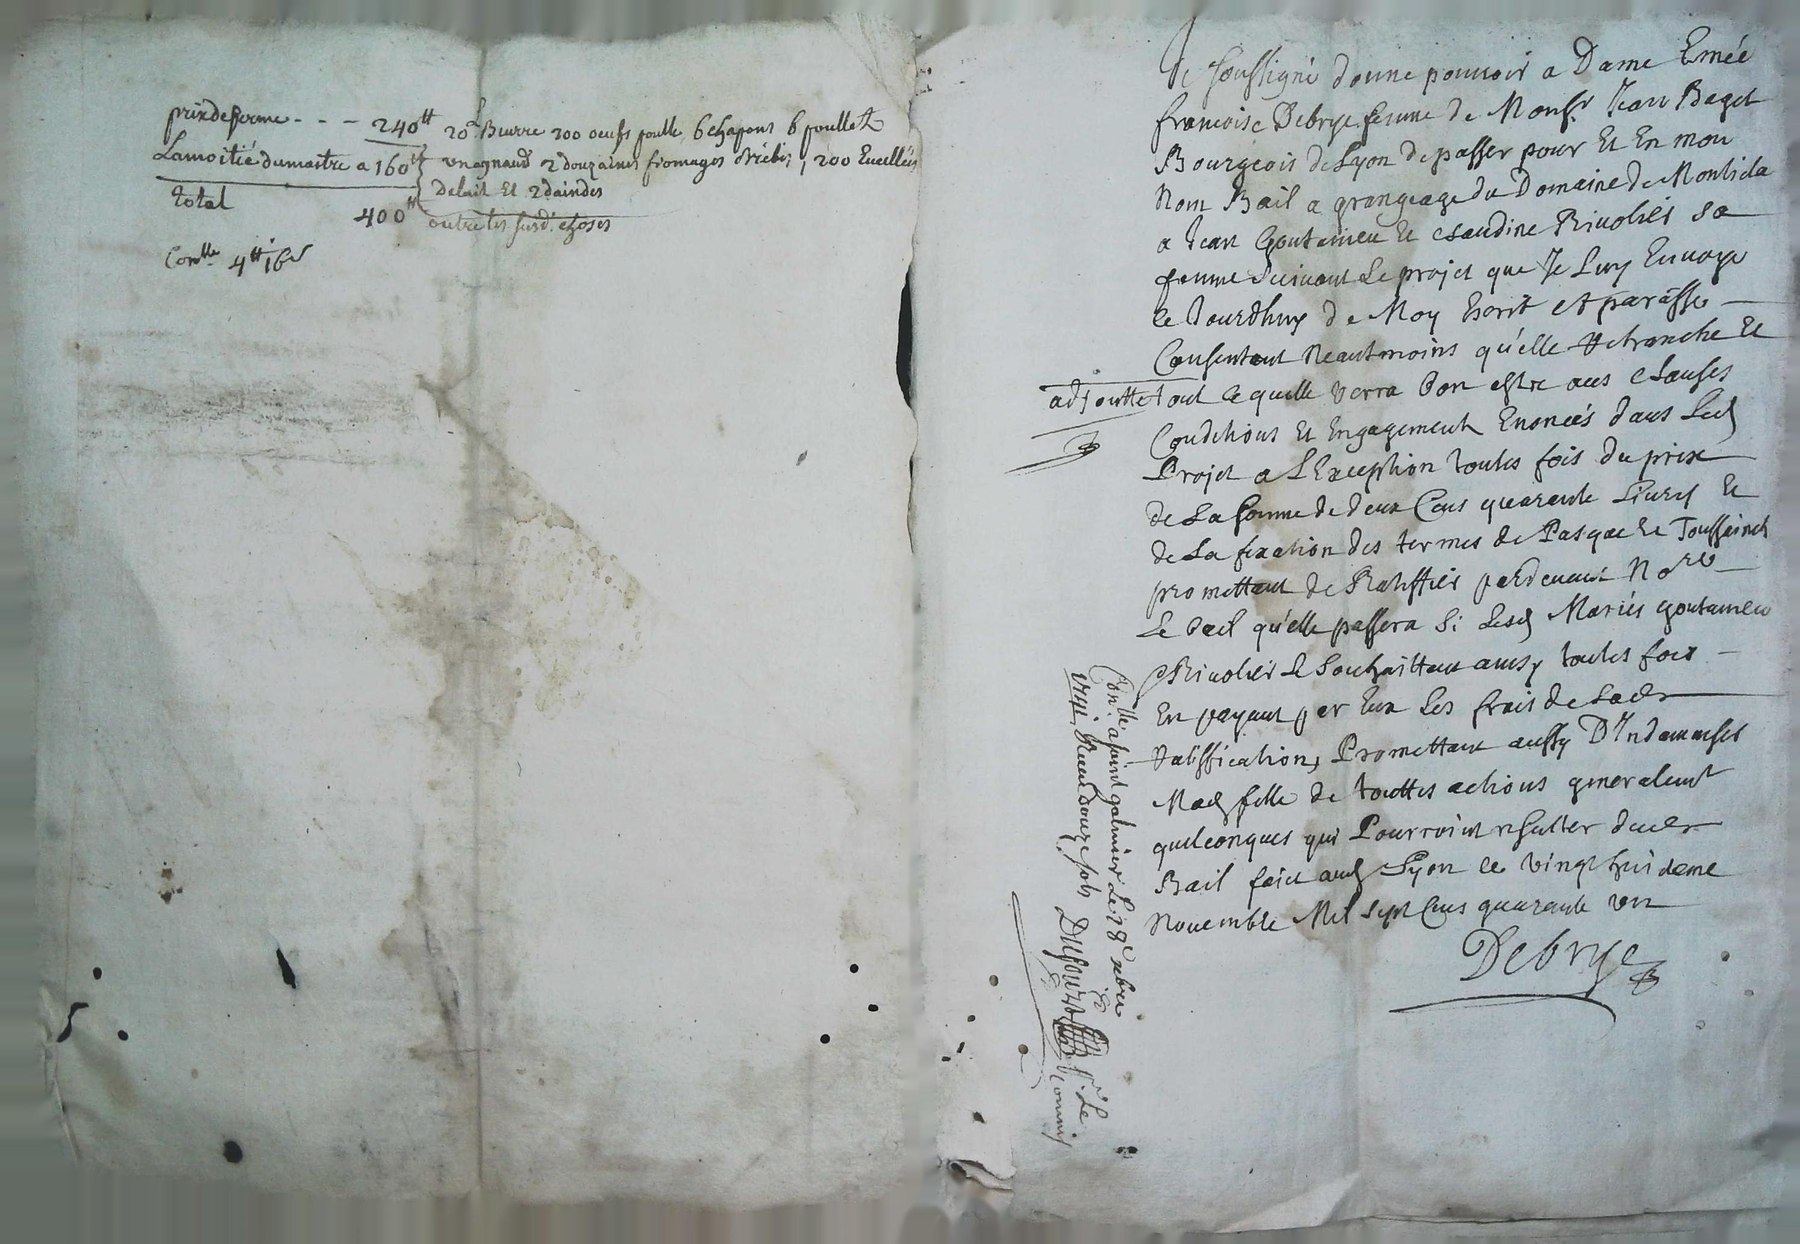 prix de ferme - - - 240tt
La moitié du maitre a 160tt
total 400tt
20l Beurre 200 oeufs poulle 6 chapons 6 poullets
un agneau 2 douzaines fromages brebis, 200
De lait Et 2 daindes
outre les susd. choses
Conlle 4tt 16s
Je soussigné donne pouvoir a Dame Emée
francoise Debrye femme de Monsr Jean Baget
Bourgeois de Lyon de passer pour Et En mon
Nom Bail a grangeage du Domaine de
a Jean Goutameu Et Claudine Rivolier sa
femme suivant Le projet que Je Luy Envoye
ce Jourdhuy de Moy Escrit et paraffé
Consentant Neantmoins qu'elle Retranche Et
adjoutte tout ce quelle verra bon estre aux clauses
Conditions Et Engagements Enoncés dans Led
Projet a L'Exception toutes fois du prix
de La somme de deux Cens quarante Livres Et
de La fixation des termes de Pasque Et Toussaincts
promettant de Ratiffier pardevant Nore
Le bail qu'elle passera si Lesd Mariés goutameu
Rivolier Le Souhaittent ausy toutes fois
En payant par Eux Les frais de Lade
ratiffication, Promettant aussy D'Indamniser
Mad fille de touttes actions generalemt
quelconques qui Pourroint resulter dud
Bail faict aud Lyon ce vingt huideme
Novembre Mil sept Cens quarante un
Debrye
Conllé a saint galmier Le 28e xbre
1741. Receu douze sols Dufour
Le commis